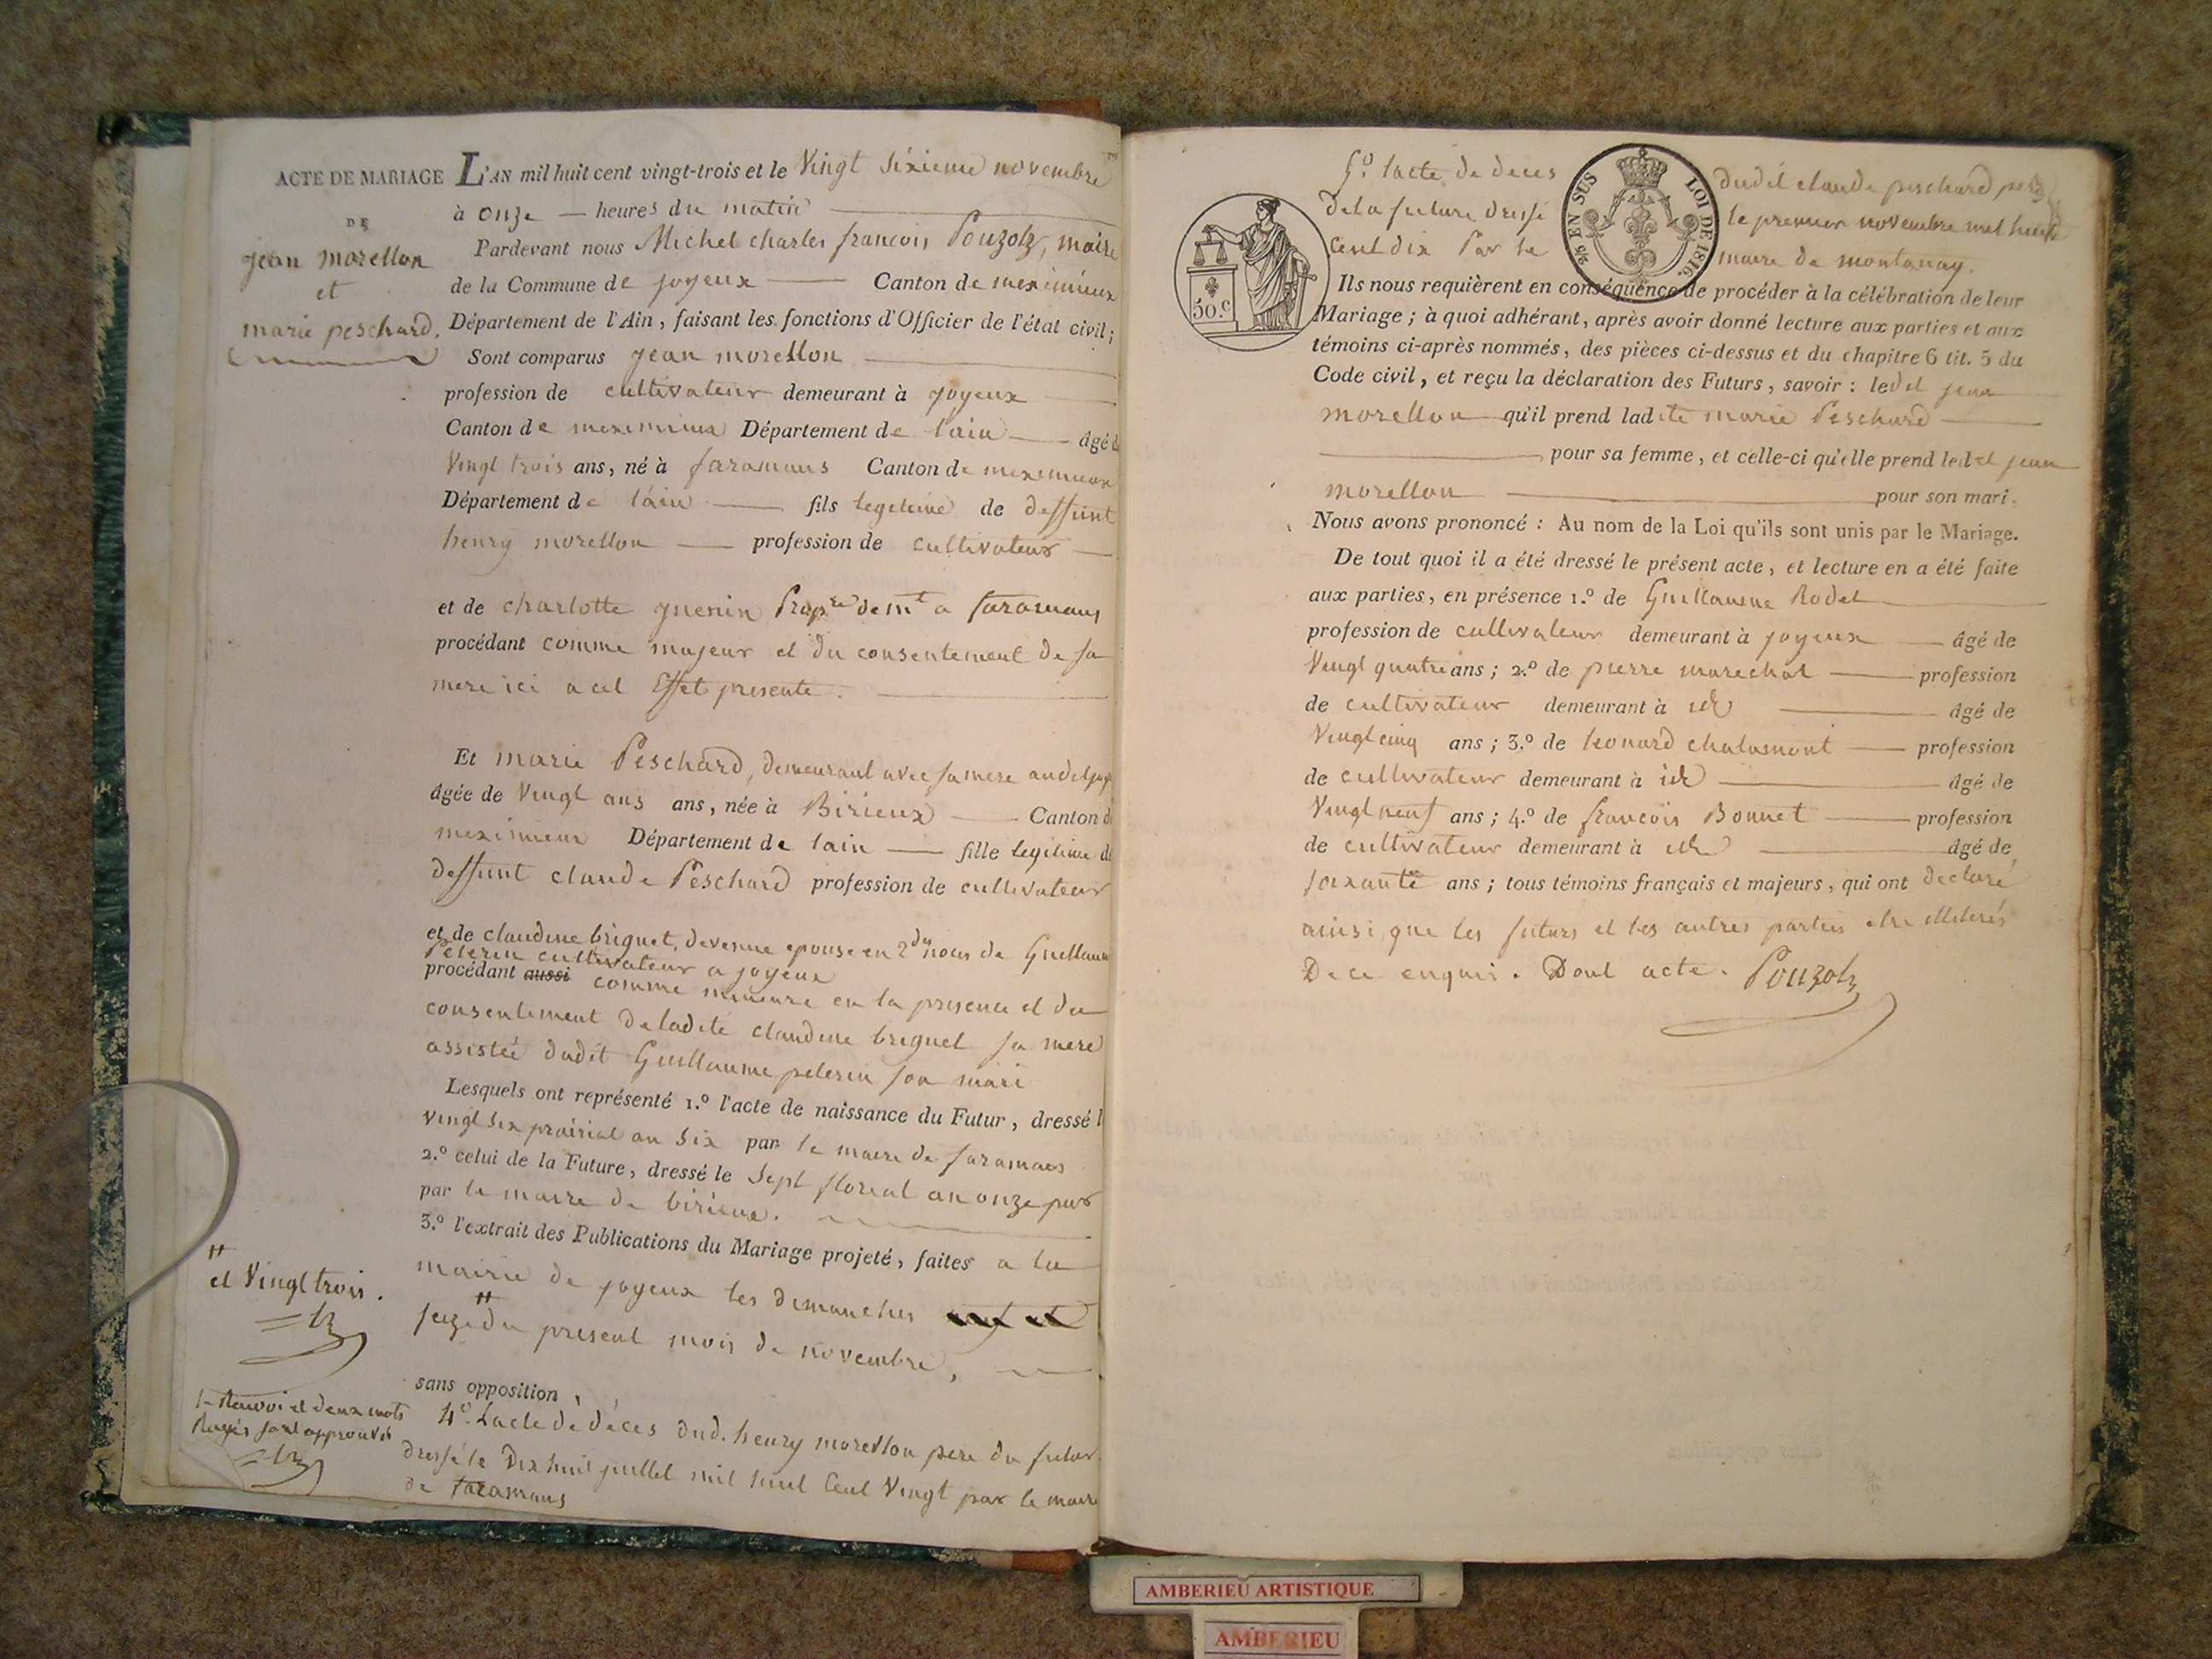 ACTE DE MARIAGE
DE
jean morellon
et
marie peschard.
L'AN mil huit cent vingt-trois et le Vingt sixieme novembre
à onze — heures du matin
Pardevant nous Michel charles francois Pouzolz, maire
de la Commune de joyeux — Canton de meximieux
Département de l'Ain, faisant les fonctions d'Officier de l'état civil;
Sont comparus jean morellon
profession de cultivateur demeurant à joyeux
Canton de meximieux Département de lain — âgé d
Vingt trois ans, né à faramans Canton de meximieux
Département de lain — fils legitime de deffunt
henry morellon — profession de cultivateur
et de charlotte guenin Propre demt a faramans
procédant comme majeur et du consentement de sa
mere ici a cet Effet presente.
Et marie Peschard, demeurant avec sa mere audit
âgée de Vingt ans ans, née à Birieux — Canton d
meximieux Département de lain — fille legitime d
deffunt claude Peschard profession de cultivateur
et de claudine briguet, devenue epouse en 2des noces de Guillaume
Pelerin cultivateur a joyeux
procédant aussi comme mineure en la presence et du
consentement de ladite claudine briguet sa mere
assistée dudit Guillaume pelerin son mari
Lesquels ont représenté 1.º l'acte de naissance du Futur, dressé l
vingt six prairial an six par le maire de faramans
2.º celui de la Future, dressé le Sept floreal an onze par
par le maire de birieux.
3.º l'extrait des Publications du Mariage projeté, faites a la
mairie de joyeux les dimanches
seize # du present mois de novembre,
sans opposition,
4º. Lacte de déces dud. henry morellon pere du futur
dressé le Dix huit juillet mil huit Cent Vingt par le maire
de faramans
#
et Vingt trois.
=lz
1 Renvoi et deux mots
Rayés sont approuvés
=lz
5º. lacte de deces dudit claude peschard pere
de la future dressé le premier novembre mil huit
Cent dix Par le maire de montanay.
50.C
2/5 EN SUS LOI DE 1816.
Ils nous requièrent en conséquence de procéder à la célébration de leur
Mariage; à quoi adhérant, après avoir donné lecture aux parties et aux
témoins ci-après nommés, des pièces ci-dessus et du chapitre 6 tit. 5 du
Code civil, et reçu la déclaration des Futurs, savoir: ledit jean
morellon — qu'il prend ladite marie Peschard
pour sa femme, et celle-ci qu'elle prend ledit jean
morellon pour son mari.
Nous avons prononcé: Au nom de la Loi qu'ils sont unis par le Mariage.
De tout quoi il a été dressé le présent acte, et lecture en a été faite
aux parties, en présence 1.º de Guillaume Rodet
profession de cultivateur demeurant à joyeux — âgé de
Vingt quatre ans; 2.º de pierre marechal — profession
de cultivateur demeurant à id âgé de
Vingt cinq ans; 3.º de leonard chalamont — profession
de cultivateur demeurant à id âgé de
Vingt neuf ans; 4.º de francois Bonnet — profession
de cultivateur demeurant à id âgé de
soixante ans; tous témoins français et majeurs, qui ont declaré
ainsi que les futurs et les autres parties etre illiterés
De ce enquis. Dont acte. Pouzolz
AMBERIEU ARTISTIQUE
AMBERIEU